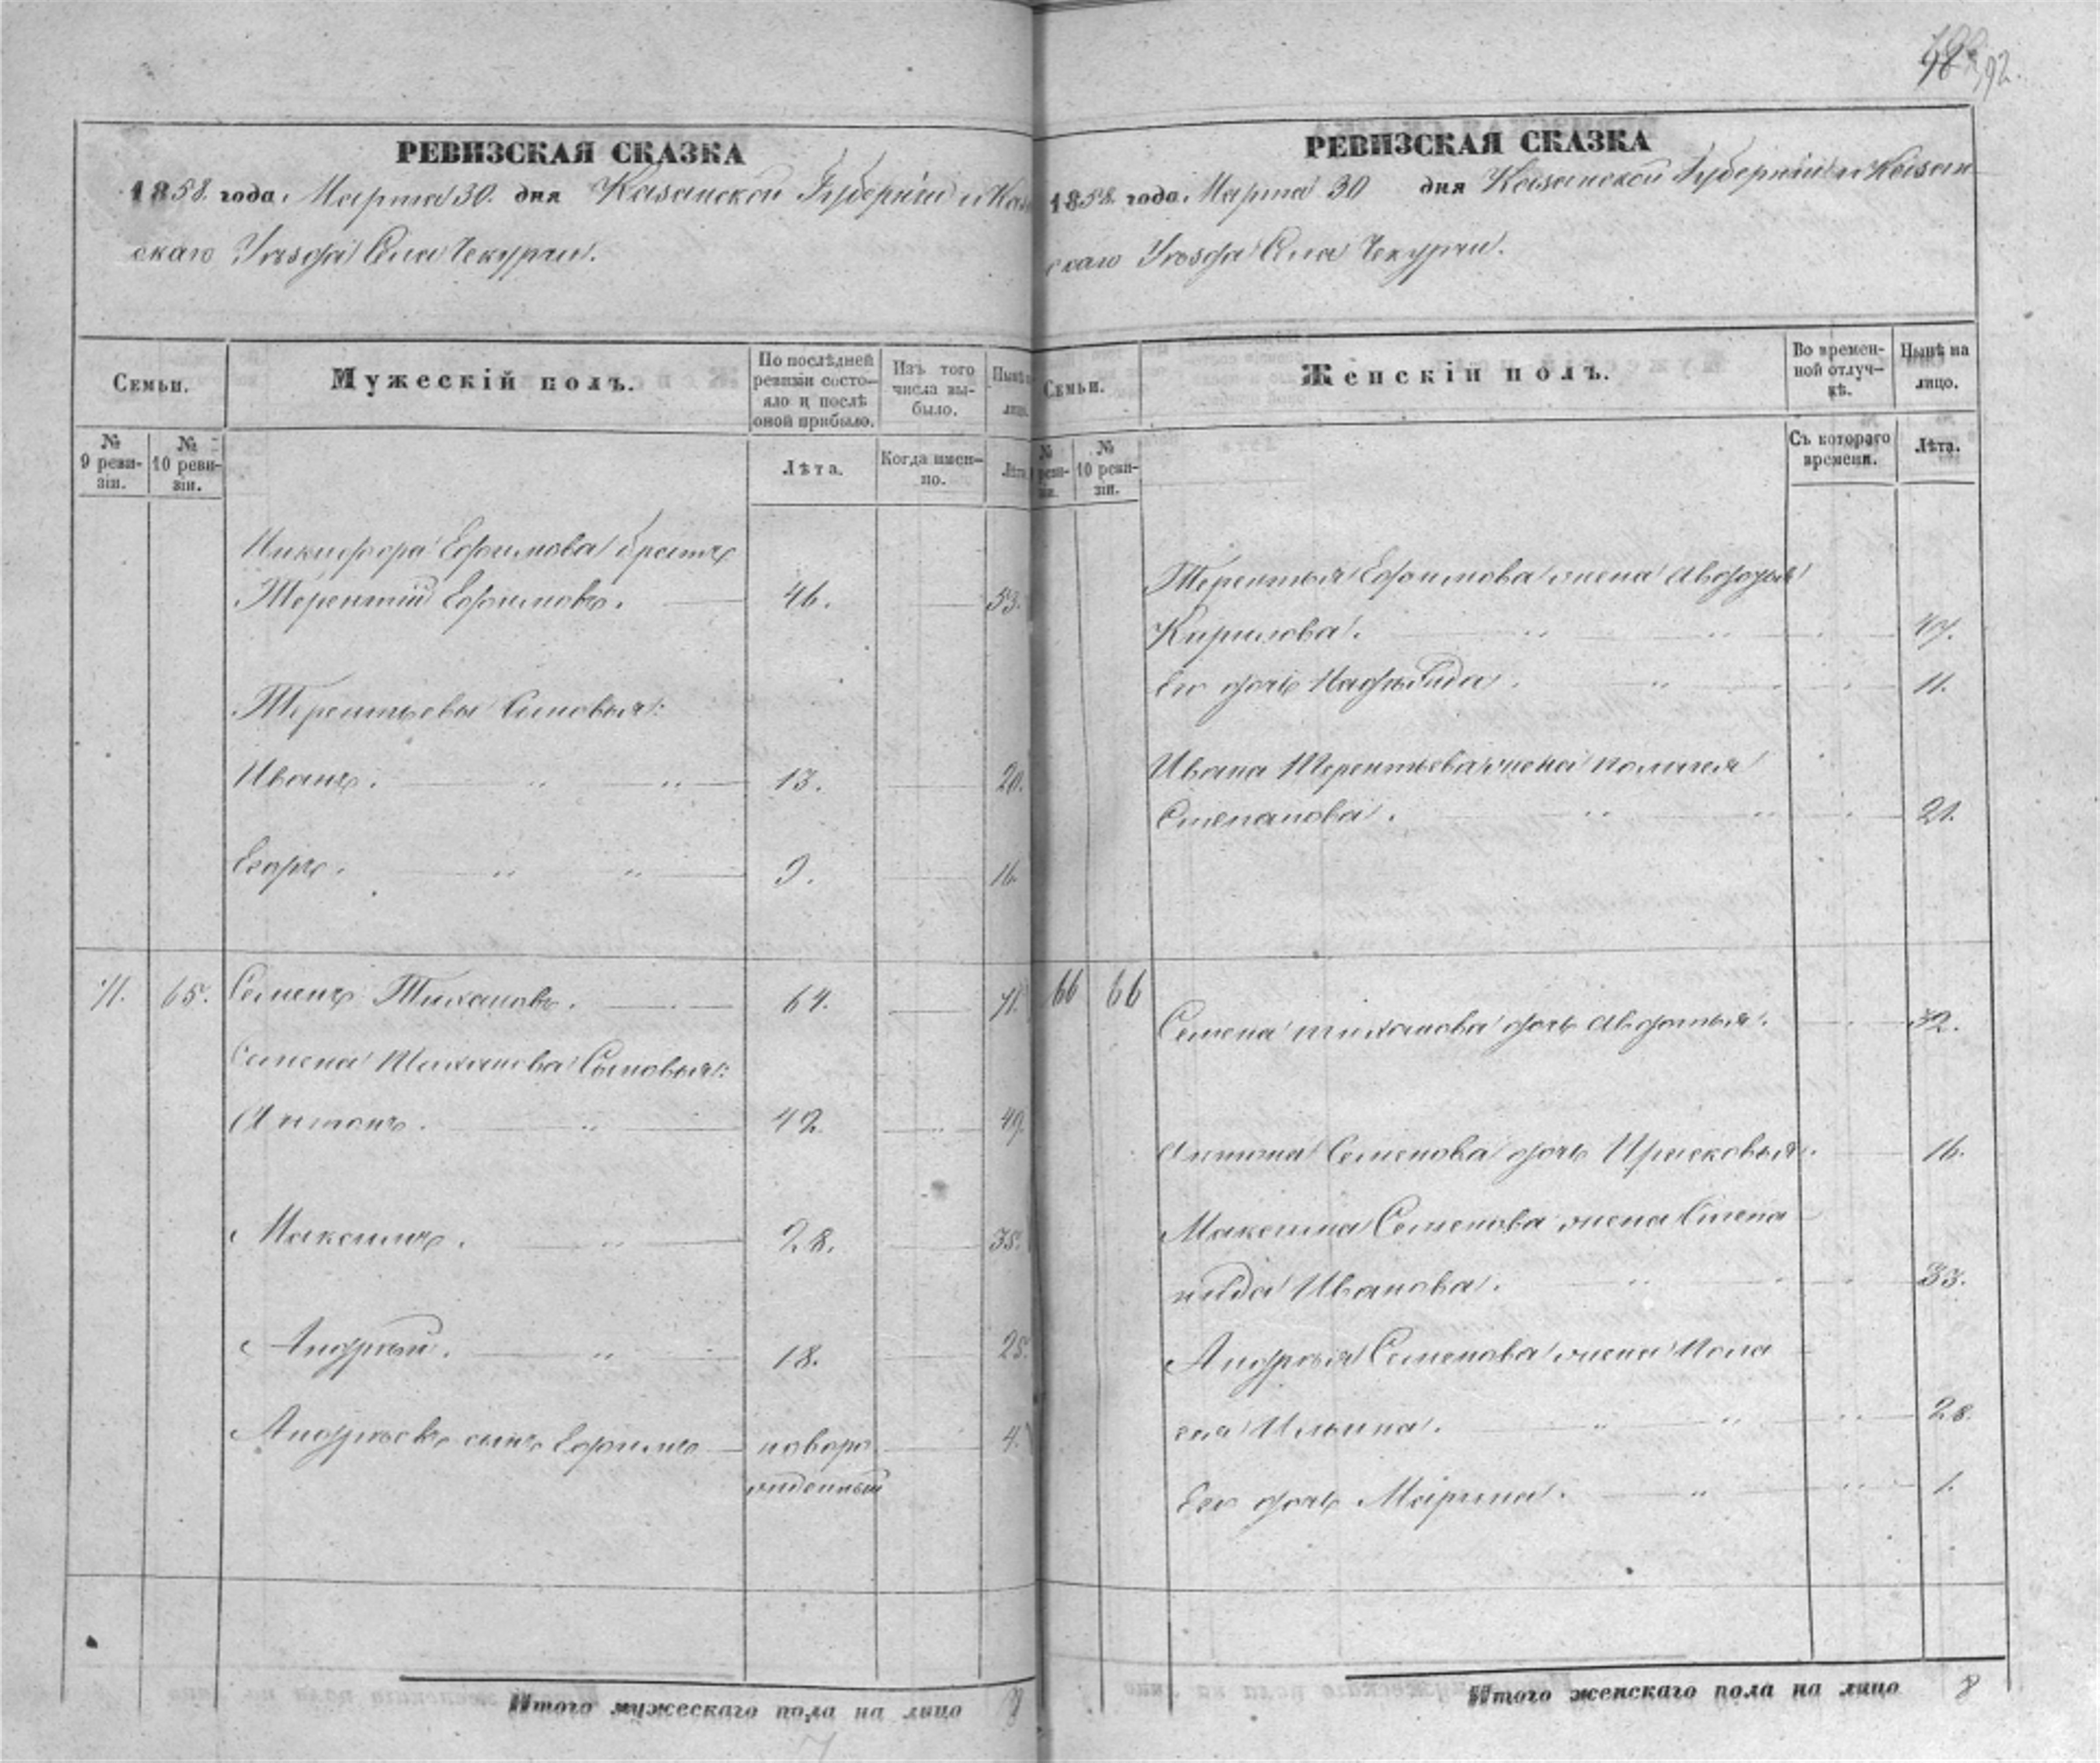 92.
РЕВИЗСКАЯ СКАЗКА
1858. года. Марта 30. дня Казанской Губернiи и Казан
скаго Уѣзда Села Чекурчи.
Семьи.
Мужескій полъ.
По послѣдней
ревизіи состо-
яло и послѣ
оной прибыло.
Изъ того
числа вы-
было.
Нынѣ
лицо.
№
9 реви-
зіи.
№
10 реви-
зіи.
Лѣта.
Когда имен-
но.
Лѣта
Никифора Ефимова братъ
Терентій Ефимовъ. 46. 53.
Терентьевы Сыновья:
Иванъ. 13. 20.
Егоръ. 9. 16.
71. 65. Семенъ Тихановъ. 64. 71.
Семена Тиханова Сыновья:
Антонъ. 42. 49.
Максимъ. 28. 35.
Андрей. 18. 25.
Андреевъ сынъ Ефимъ новоро 4.
жденный
Итого мужескаго пола на лицо 8
7
РЕВИЗСКАЯ СКАЗКА
1858. года. Марта 30 дня Казанской Губерніи и Казан
скаго Уѣзда Села Чекурчи.
Семьи.
Женскій полъ.
Во времен-
ной отлуч-
кѣ.
Нынѣ на
лицо.
№
реви-
зіи.
№
10 реви-
зіи.
Съ котораго
времени.
Лѣта.
Терентья Ефимова жена Авдотья
Кирилова. 47.
Его дочь 11.
Ивана Терентьева жена Палагея
Степанова. 21.
66 66
Семена Тиханова дочь Авдотья. 32.
Антона Семенова дочь Прасковья. 16.
Максима Семенова жена Степа
нида Иванова. 33.
Андрея Семенова жена Пала
гея Ильина. 28.
Его дочь Марина. 1.
Итого женскаго пола на лицо 8